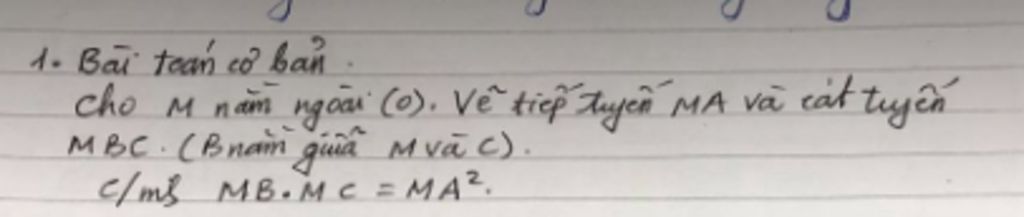 1. Bài toán cơ bản.
Cho M nằm ngoài (O). Vẽ tiếp tuyến MA và cát tuyến
MBC. (B nằm giữa M và C).
C/m MB.MC = MA².